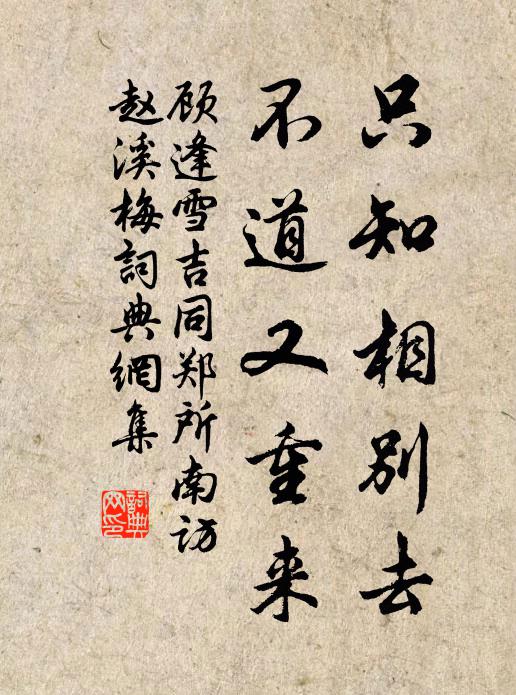 只知相别去
不道又重来
顾逢雪吉同郑所南访
赵溪梅詞典網集
詞典網印